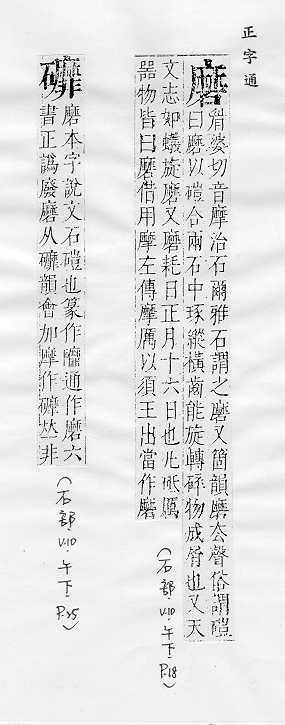 正字通
磨
眉婆切音摩治石爾雅石謂之磨又箇韻磨去聲俗謂磑
曰磨以磑合兩石中琢縱橫齒能旋轉碎物成屑也又天
文志如蟻旋磨又磨耗日正月十六日也凡砥厲
器物皆曰磨借用摩左傳摩厲以須王出當作磨
(石部.V.10.午下.P.18)
䃺
磨本字說文石磑也篆作䃺通作磨六
書正譌廢磨从䃺韻會加摩作礳𠀤非
(石部.V.10.午下.P.25)